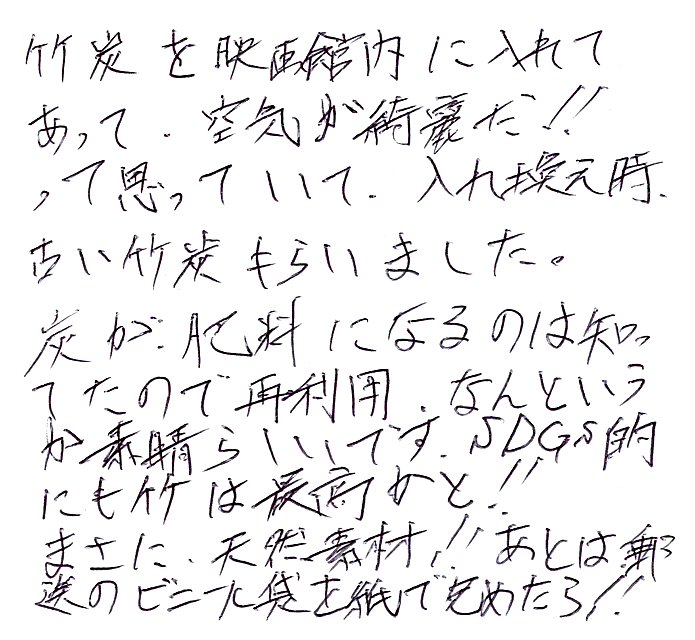 竹炭を映画館内に入れて
あって、空気が綺麗だ!!
って思っていて、入れ換え時、
古い竹炭もらいました。
炭が、肥料になるのは知っ
てたので再利用、なんという
か素晴らしいです、SDGs的
にも竹は最高かと!!
まさに、天然素材!!あとは郵
送のビニール袋を紙で包めたら!!